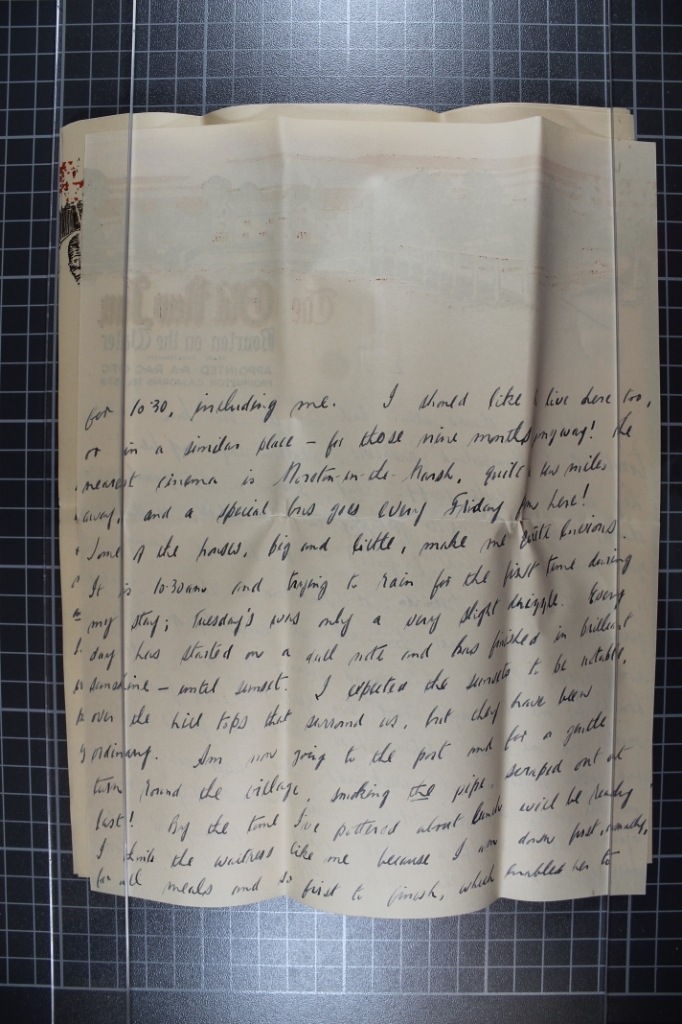 The Old New Inn
Bourton on the Water
APPOINTED A.A. R.A.C. C.T.C
for 10.30, including me. I should like live here too,
or in a similar place – for those nine months anyway! The
nearest cinema is Moreton-in-the-Marsh, quite a few miles
away, and a special bus goes every Friday from here!
Some of the houses, big and little, make me quite envious.
It is 10.30am and trying to rain for the first time during
my stay; Tuesday's was only a very slight drizzle. Every
day has started on a dull note and has finished in brilliant
sunshine – until sunset. I expected the sunsets to be notable,
over the hill tops that surround us, but they have been
ordinary. Am now going to the post and for a gentle
turn round the village, smoking the pipe, scraped out at
last! By the time I've pottered about lunch will be ready
I think the waitress like me because I am down first, usually,
for all meals and so first to finish, which enables her to